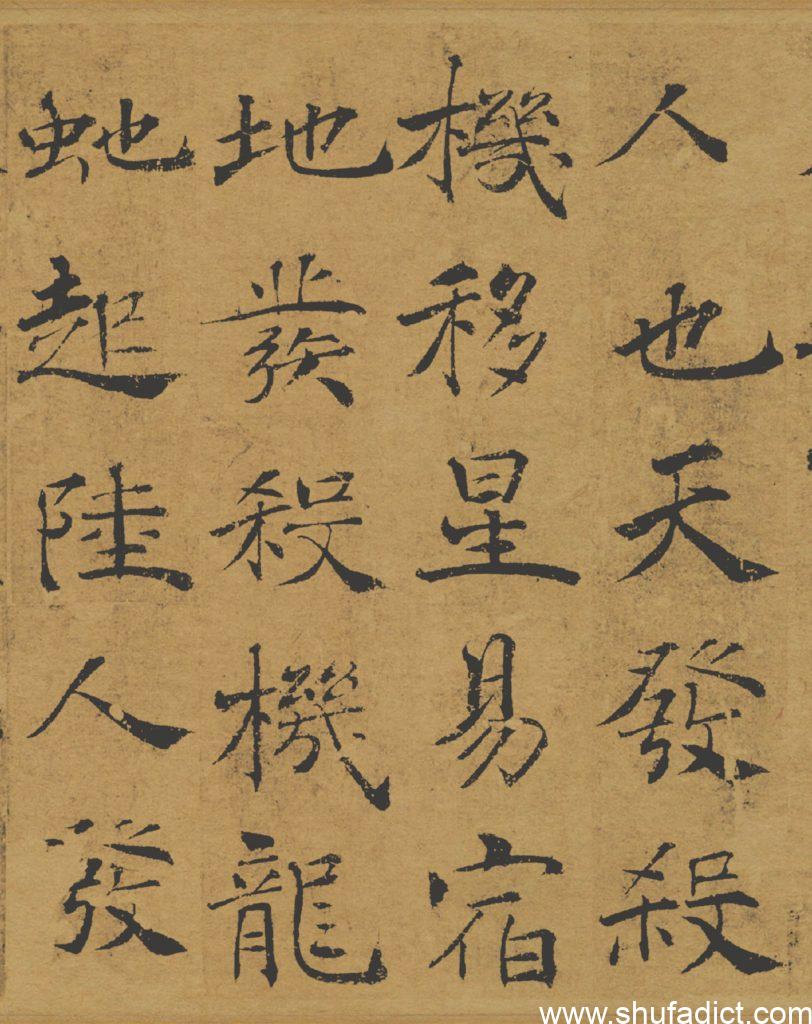 人也天發殺
機移星易宿
地發殺機龍
虵起陸人發
www.shufadict.com